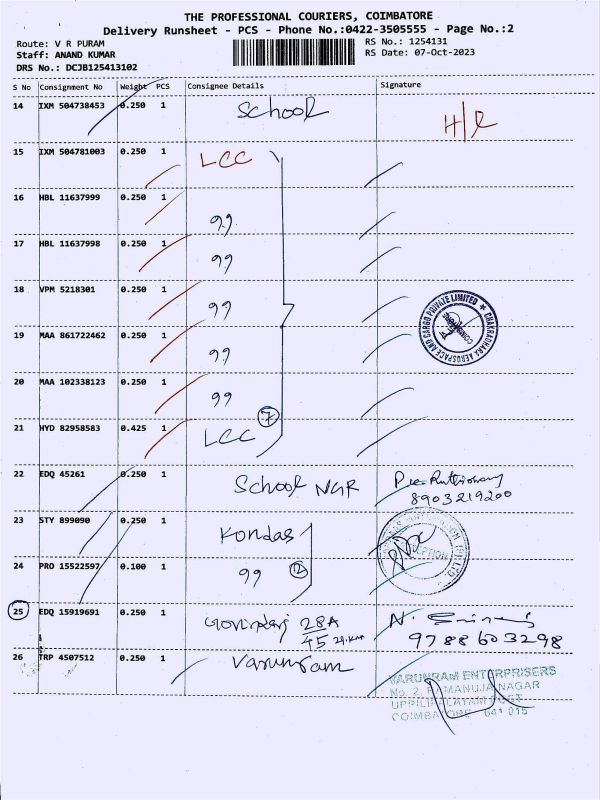 THE PROFESSIONAL COURIERS, COIMBATORE
Delivery Runsheet - PCS - Phone No.:0422-3505555 - Page No.:2
Route: V R PURAM
RS No.: 1254131
Staff: ANAND KUMAR
RS Date: 07-Oct-2023
DRS No.: DCJB125413102
S No Consignment No Weight PCS Consignee Details Signature
14 IXM 504738453 0.250 1 School H/R
15 IXM 504781003 0.250 1 LCC
16 HBL 11637999 0.250 1 99
17 HBL 11637998 0.250 1 99
18 VPM 5218301 0.250 1 99
19 MAA 861722462 0.250 1 99
20 MAA 102338123 0.250 1 99
7
21 HYD 82958583 0.425 1 LCC
CHAKRADHARA AEROSPACE AND CARGO PRIVATE LIMITED
22 EDQ 45261 0.250 1 School NGR
8903219200
23 STY 899090 0.250 1 Kondas
24 PRO 15522597 0.100 1 99 2
25 EDQ 15919691 0.250 1 Govindaraj 28A/45 N.
9788603298
26 TRP 4507512 0.250 1 Varunram
VARUNRAM ENTERPRISERS
No. 2, RAMANUJA NAGAR
UPPILIPALAYAM POST
COIMBATORE - 641 015